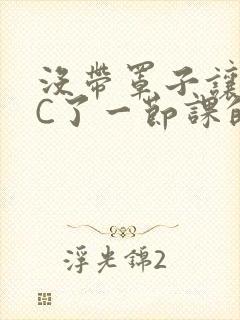 沒帶罩子讓
C了一節課
浮光錦2